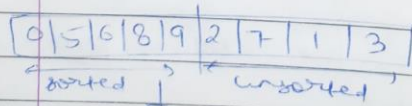 0 | 5 | 6 | 8 | 9 | 2 | 7 | 1 | 3
sorted unsorted